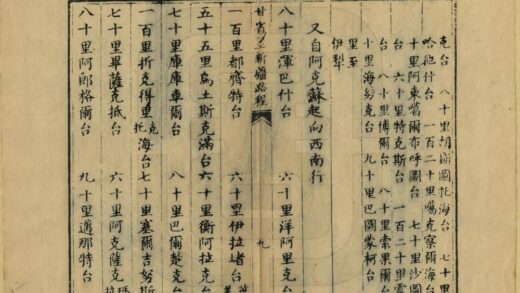 克台 八十里胡斯圖托海台 七十里
哈他什台 一百二十里噶克察爾海台
十里阿東噶爾布呼圖台 七十里沙圖
台 六十里特克斯台 一百二十里
台 八十里博爾台 八十里索果爾台
十里海努克台 九十里巴圖蒙柯台
里至
伊犁
又自阿克蘇起向西南行
八十里渾巴什台 六十里洋阿里克台
甘省至新疆路程 九
一百里都齊特台 六十里伊拉堵台
五十五里烏土斯克滿台 六十里衡阿拉克台
七十里庫庫車爾台 八十里巴爾楚克台
一百里折克得里克托海台 七十里塞爾吉努斯
七十里畢薩克抵台 六十里阿克薩克瑪
八十里阿郎格爾台 九十里邁那特台